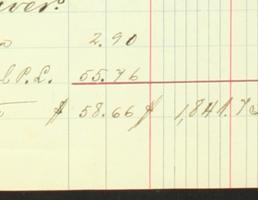 iver.
2.90
P.L. 55.76
$ 58.66 $ 1,841.7